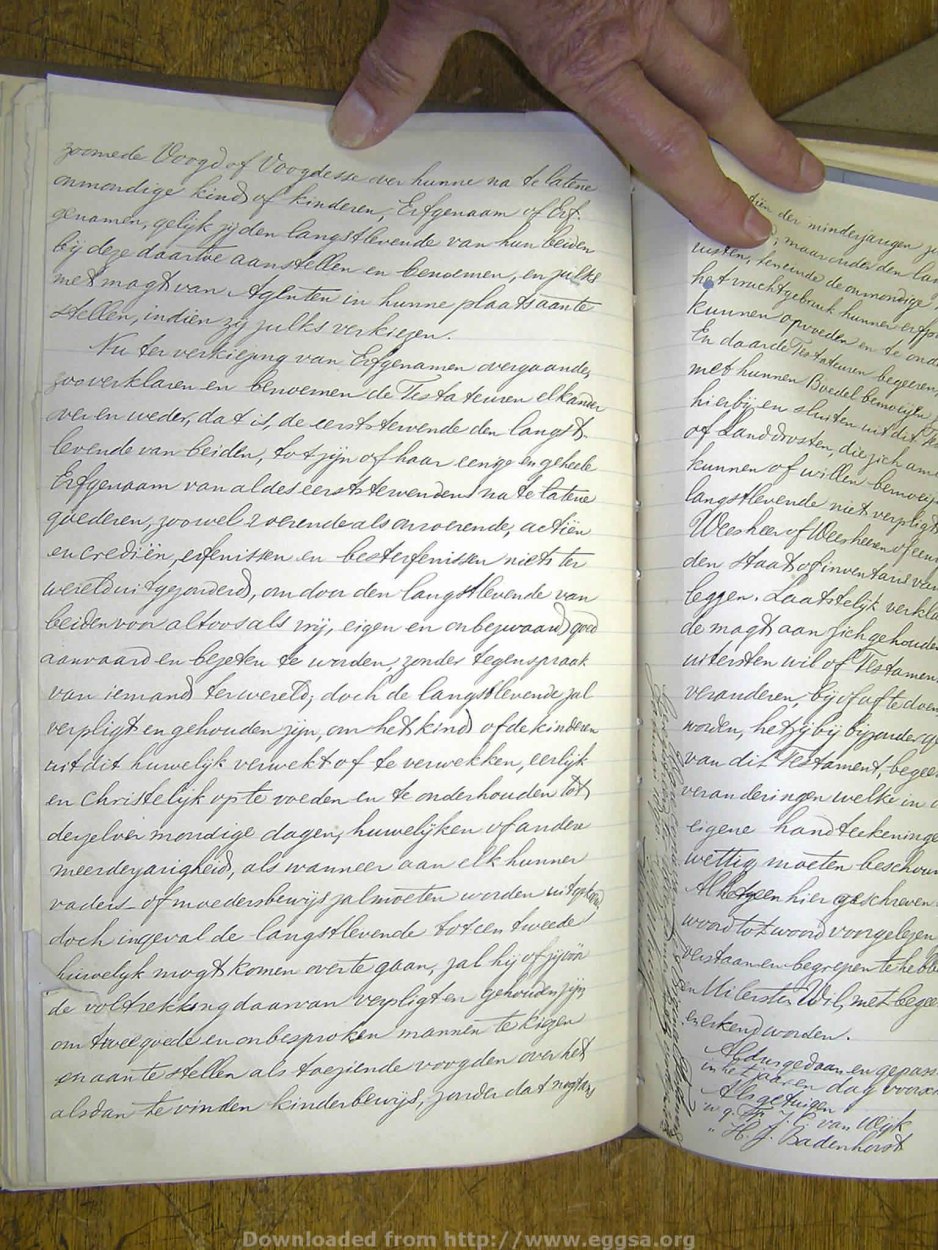 zoomede Voogd of Voogdesse over hunne na te latene
onmondige kind of kinderen, Erfgenaam of Erf-
genamen, gelyk zy den langstlevende van hun beiden
by deze daartoe aanstellen en benoemen, en zulks
met magt van Agenten in hunne plaats aan te
stellen, indien zy zulks verkiezen.
Nu ter verkiezing van Erfgenamen overgaande,
zoo verklaren en benoemen de Testateuren elkander
over en weder, dat is, de eerststervende den langst-
levende van beiden, tot zyn of haar eenige en geheele
Erfgenaam van al des eerststervendens na te latene
goederen, zoo wel roerende als onroerende, actiën
en crediën, erfenissen en besterfenissen niets ter
wereld uitgezonderd, om door den langstlevende van
beiden voor altoos als vrij, eigen en onbezwaard goed
aanvaard en bezeten te worden, zonder tegenspraak
van iemand ter wereld; doch de langstlevende zal
verpligt en gehouden zyn, om het kind of de kinderen
uit dit huwelyk verwekt of te verwekken, eerlyk
en Christelyk op te voeden en te onderhouden tot
derzelver mondige dagen, huwelyken of andere
meerderjarigheid, als wanneer aan elk hunner
vaders- of moedersbewys zal moeten worden uitgekeerd
doch ingeval de langstlevende tot een tweede
huwelyk mogt komen over te gaan, zal hij of zy voor
de voltrekking daarvan verpligt en gehouden zyn
om twee goede en onbesproken mannen te kiezen
en aan te stellen als toeziende voogden over het
alsdan te vinden kinderbewys, zonder dat nogtans
der minderjarigen
maar onder den
rusten, teneinde de onmondige
het vruchtgebruik hunner
kunnen opvoeden en te
En daar de Testateuren begeeren,
met hunnen Boedel bemoeije
hierby en sluiten uit dit
of Landdrosten, die zich
kunnen of willen bemoeij
langstlevende niet verpligt
Weesheer of Weesheeren of
den Staat of inventaris van
leggen. Laatstelyk verkla
de magt aan zich gehouden
uitersten wil of Testament
veranderen, by of af te doen
worden, het zy by byzondere
van dit Testament, begee
veranderingen welke in
eigene handteekeninge
wettig moeten beschouw
Al hetgeen hier geschreven
woord tot woord voorgelezen
verstaan en begrepen te hebb
en Uitersten Wil, met begee
en erkend worden.
Aldus gedaan en gepass
in het jaar en dag voorsc
Als getuigen
w.g. J. C. van Wyk
" H. J. Badenhorst
Downloaded from http://www.eggsa.org